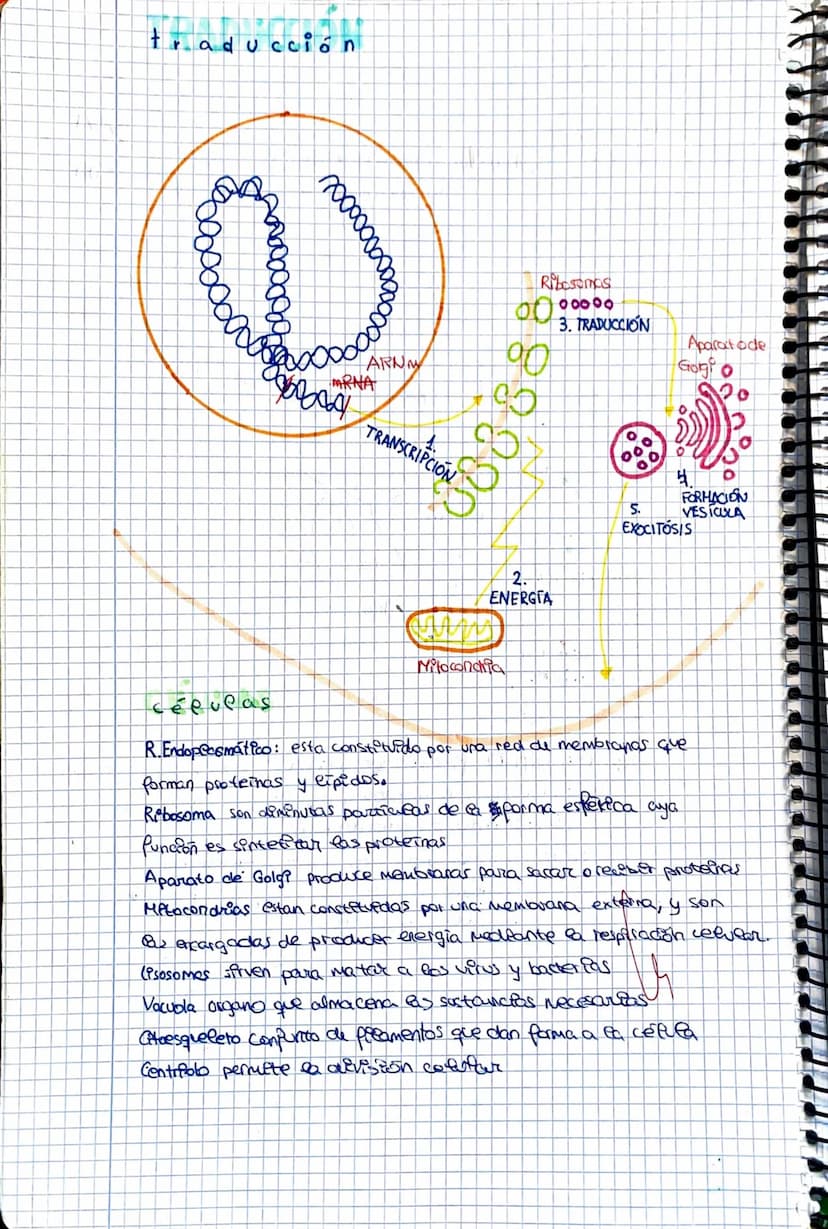 TRADUCCIÓN
traducción
Ribosomas
3. TRADUCCIÓN
Aparato de
Golgi
ARNm
mRNA
1.
TRANSCRIPCIÓN
4.
FORMACIÓN
VESÍCULA
5.
EXOCITÓSIS
2.
ENERGÍA
Mitocondria
células
R.Endoplasmático: esta constituido por una red de membranas que
forman proteinas y lípidos.
Ribosoma son diminutas partículas de la forma esférica cuya
función es sintetizar las proteinas
Aparato de Golgi produce membranas para sacar o recibir proteinas
Mitocondrias estan constituidas por una membrana externa, y son
las encargadas de producir energía mediante la respiración celular.
Lisosomas sirven para matar a los virus y bacterias
Vacuola organo que almacena las sustancias necesarias
Citoesqueleto conjunto de filamentos que dan forma a la célula
Centriolo permite la división celular